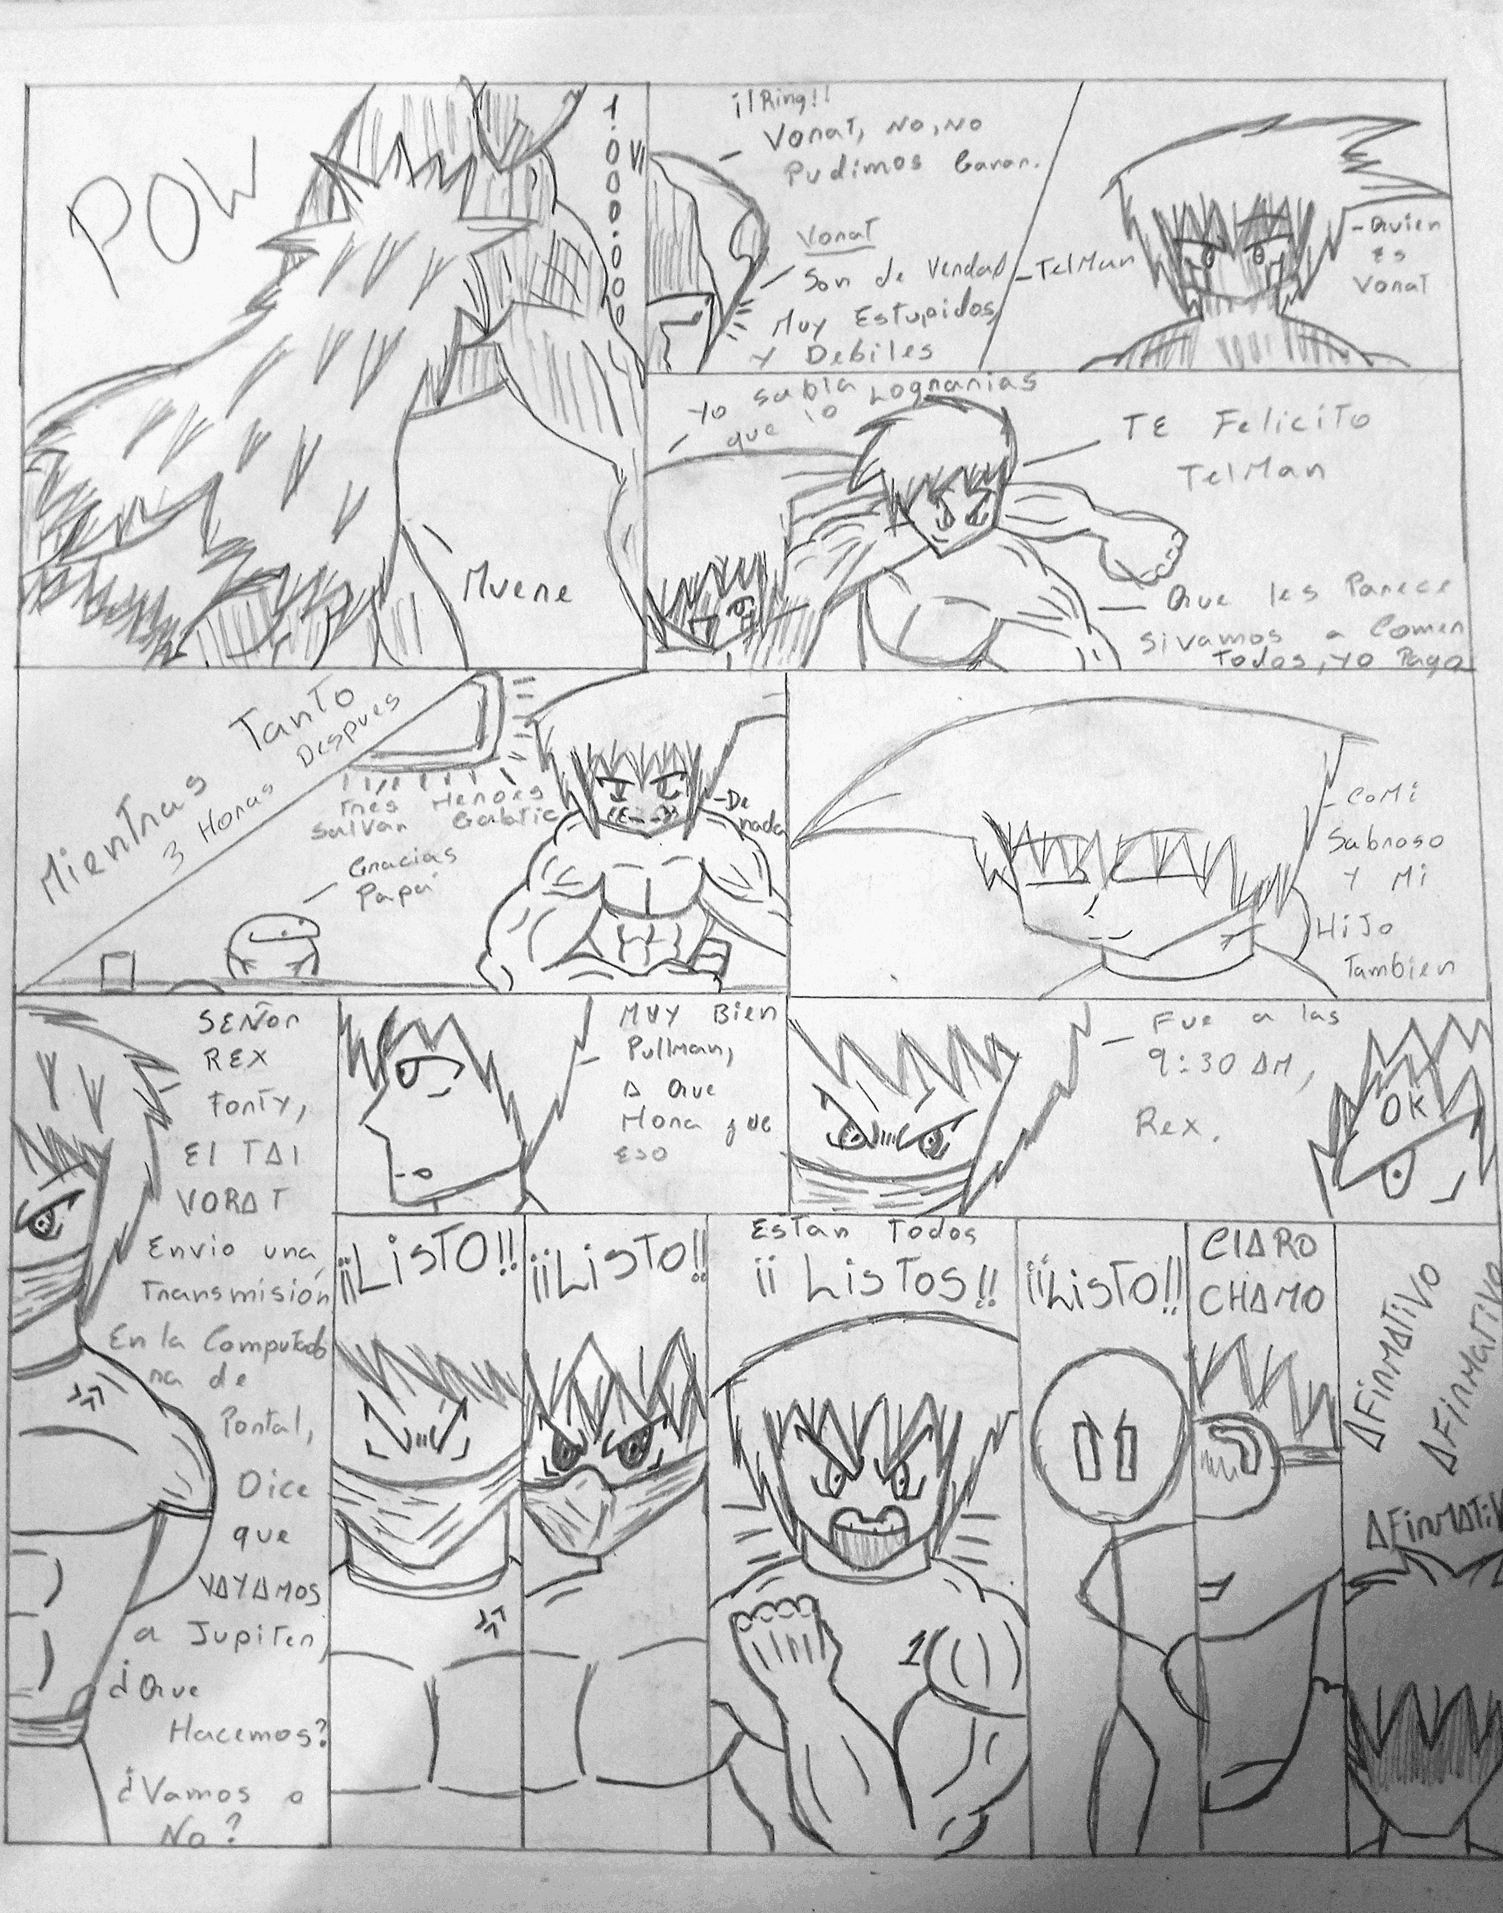 POW
1.000.000
Muere
¡¡Ring!!
Vorat, No, No
Pudimos Ganar.
Vorat
Son de Verdad
Muy Estupidos,
y Debiles
-TelMan
-Quien
Es
Vorat
Yo sabia
que lo
Lograrias
TE Felicito
TelMan
Que les Parece
Si vamos a Comer
Todos, Yo Pago
Mientras Tanto
3 Horas Despues
Tres Heroes
Salvan Galatic
Gracias
Papá
-De
nada
-Comi
Sabroso
Y Mi
Hijo
Tambien
SEÑor
REX
Fonty,
El TAI
VORAT
Envio una
Transmisión
En la Computado
ra de
Portal,
Dice
que
VAYAMOS
a Jupiter,
¿Que
Hacemos?
¿Vamos o
No?
MUY Bien
Pullman,
A Que
Hora fue
ESO
Fue a las
9:30 AM,
Rex.
OK
¡¡LiSTO!!
¡¡LiSTO!!
Estan Todos
¡¡LisTos!!
1
¡¡LisTO!!
ClARO
CHAMO
AFirMATiVO
AFirMATiVO
AFirMATiV